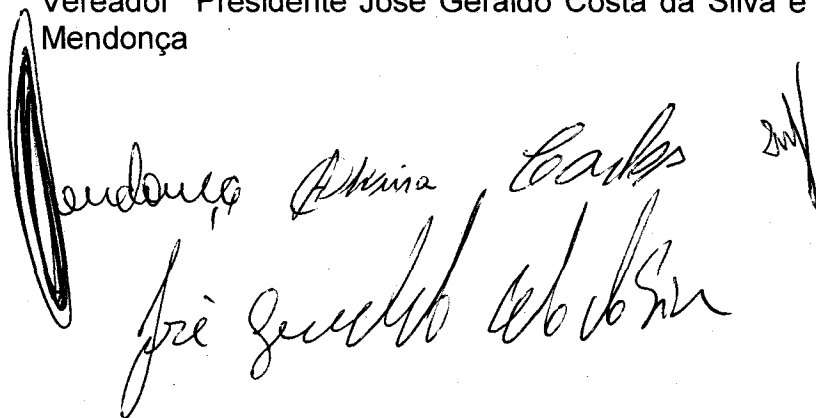 Vereador Presidente José Geraldo Costa da Silva e
Mendonça
Mendonça Carlos
José Geraldo